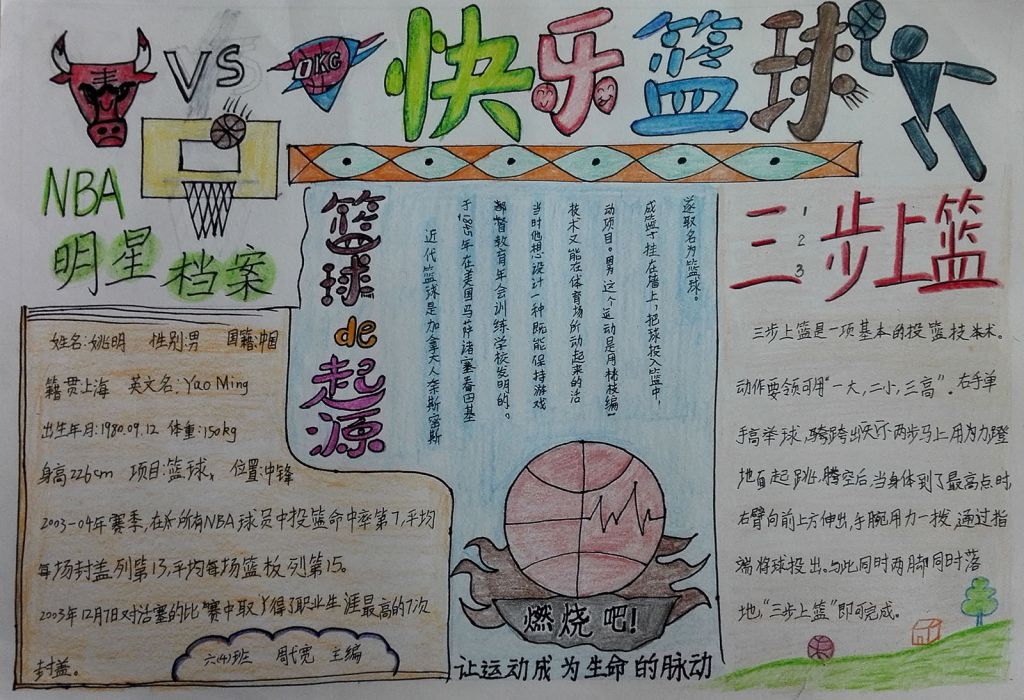 VS
OKC
快乐篮球
NBA
明星档案
姓名:姚明 性别:男 国籍:中国
籍贯:上海 英文名:Yao Ming
出生年月:1980.09.12 体重:150kg
身高226cm 项目:篮球 位置:中锋
2003-04年赛季,在所有NBA球员中投篮命中率第7,平均
每场封盖列第13,平均每场篮板列第15。
2003年12月7日对活塞的比赛中取得了职业生涯最高的7次
封盖。
六(4)班 周代宽 主编
篮球de起源
近代篮球是加拿大人奈斯密斯
于1895年在美国马萨诸塞春田基
督教育年会训练学校发明的。
当时他想设计一种既能保持游戏
技术又能在体育场所动起来的活
动项目。因为这个运动是用桃枝编
成篮子挂在墙上,把球投入篮中,
遂取名为篮球。
燃烧吧!
让运动成为生命的脉动
三步上篮
1
2
3
三步上篮是一项基本的投篮技术。
动作要领可用“一大,二小,三高”。右手单
手高举球,跨出 两步马上用力蹬
地面起跳。腾空后,当身体到了最高点时,
右臂向前上方伸出,手腕用力一拨,通过指
端将球投出。与此同时两脚同时落
地,“三步上篮”即可完成。